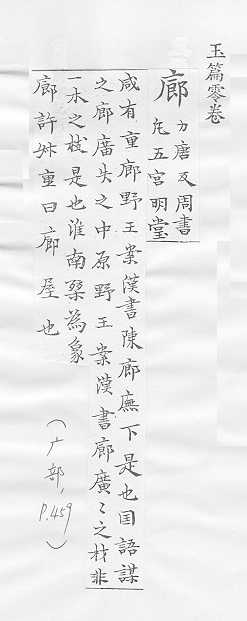 玉篇零卷
廊 力唐反周書
凡五宮明堂
咸有重廊野王案漢書陳廊廡下是也国語謀
之廊廣失之中原野王案漢書廊廣〻之材非
一木之枝是也淮南桀為象
廊許叔重曰廊屋也
(广部, P.459)